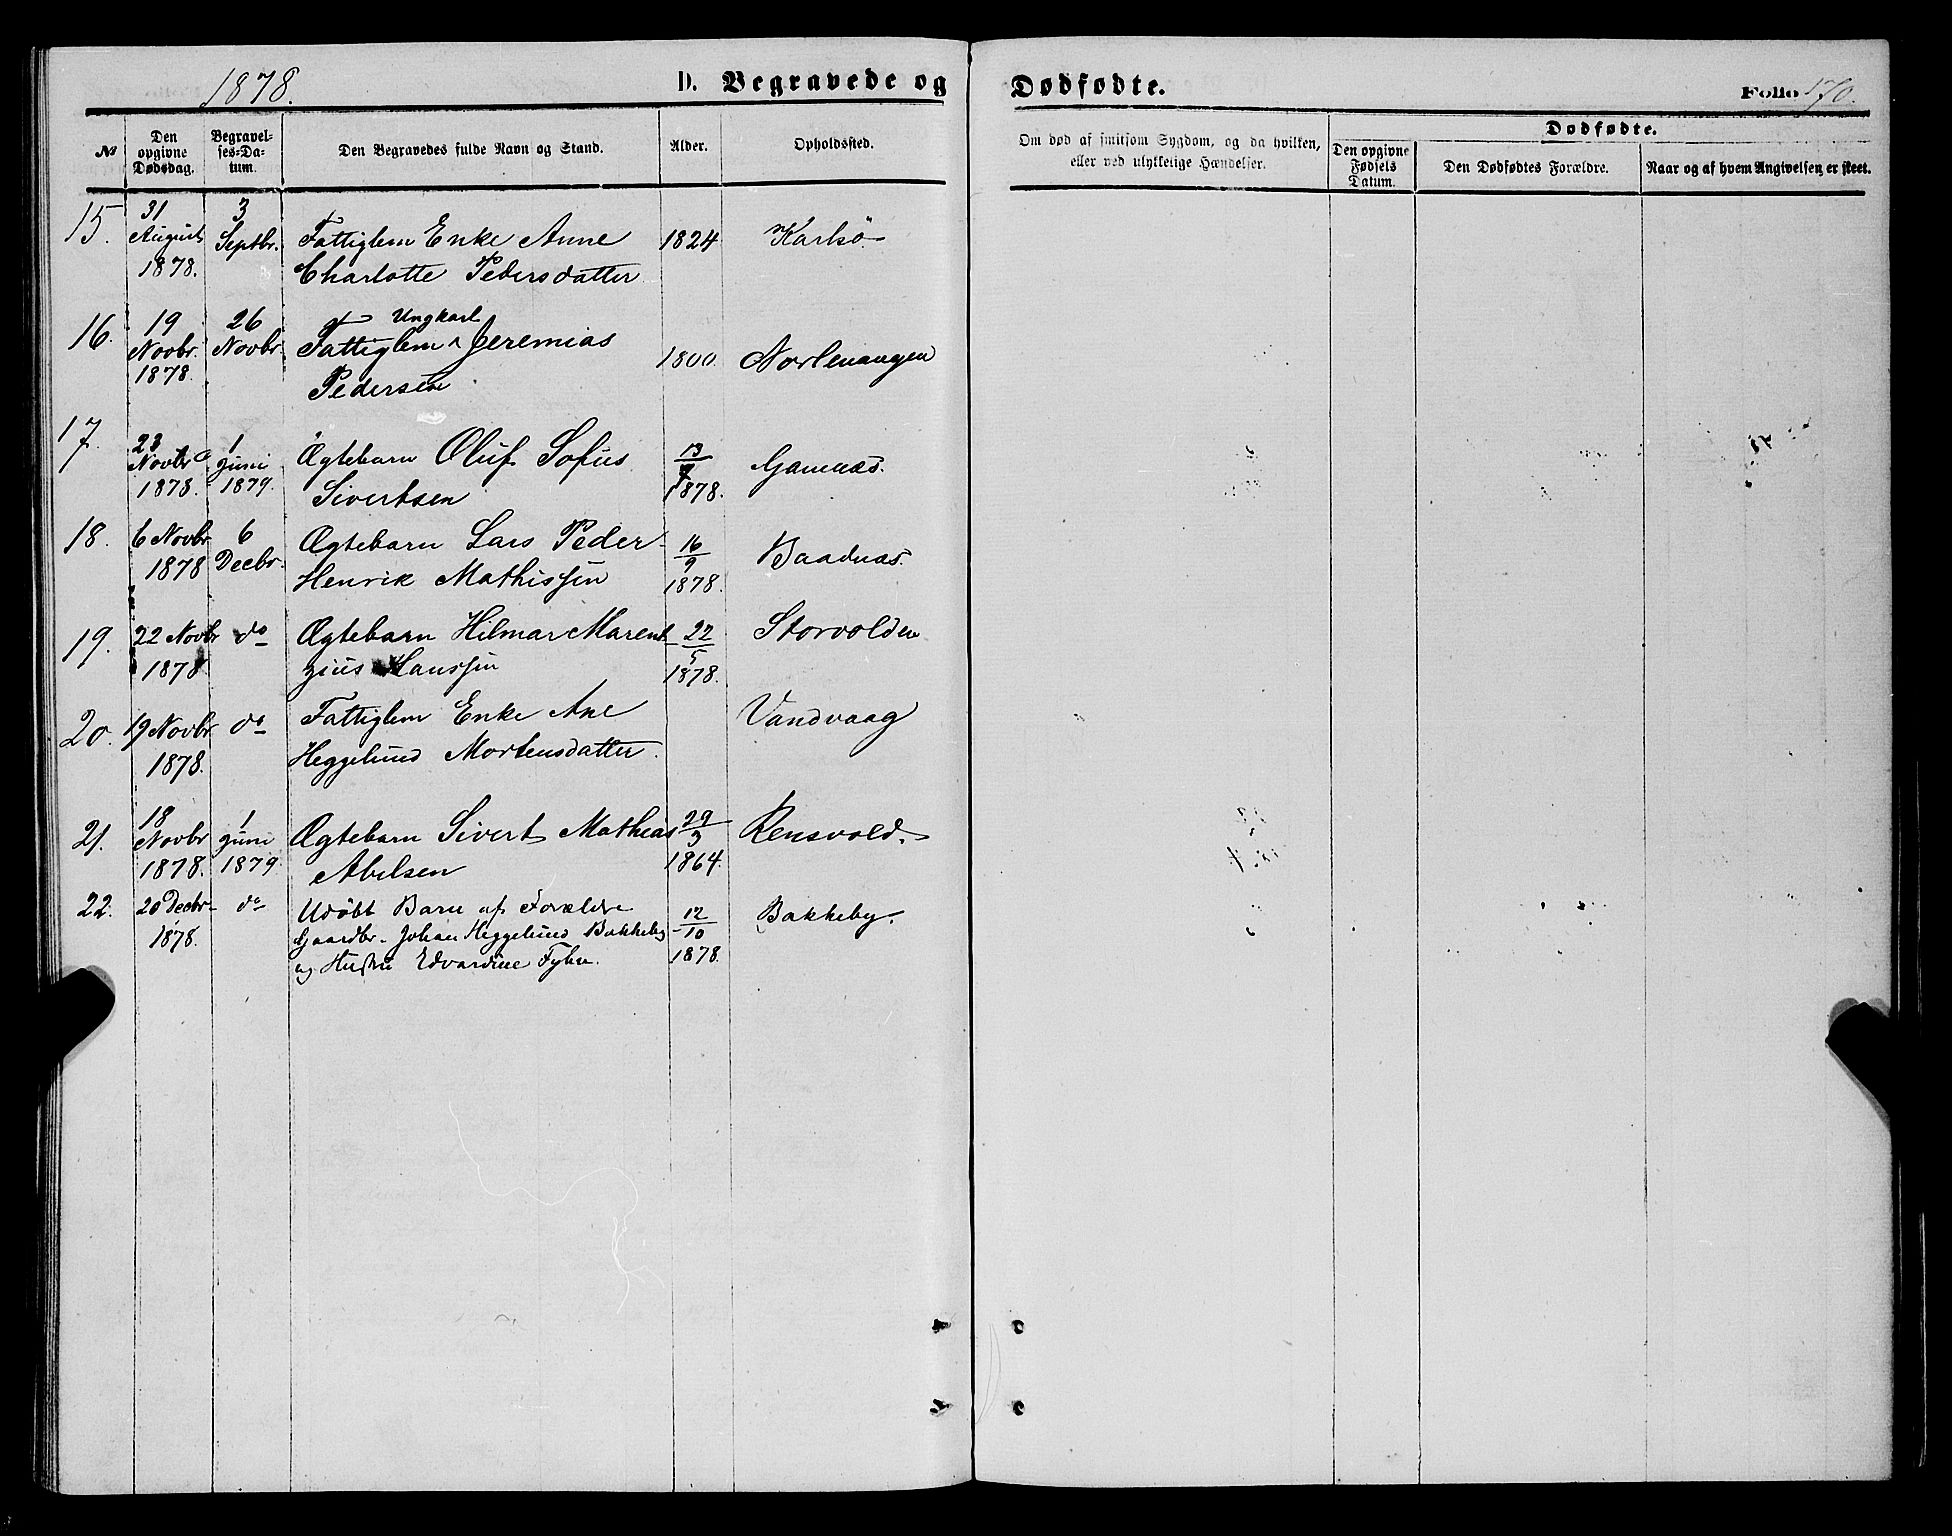 1878.
D. Begravede og Dødfødte.
Folio 170.
№
Den opgivne Dødsdag.
Begravelses-Datum.
Den Begravedes fulde Navn og Stand.
Alder.
Opholdssted.
Om død af smitsom Sygdom, og da hvilken, eller ved ulykkelige Hændelser.
Dødfødte.
Den opgivne Fødsels Datum.
Den Dødfødtes Forældre.
Naar og af hvem Angivelsen er skeet.
15. 31 August 1878. 3 Septbr. Fattiglem Enke Anne 1824 Karlsö
Charlotte Pedersdatter
16. 19 Novbr. 1878. 26 Novbr. Fattiglem Ungkarl Jeremias 1800. Norlenangen
Pedersen
17. 23 Novbr 1878. 1 Juni 1879. Ægtebarn Oluf Sofius 13/9 1878. Gamnæs.
Sivertsen
18. 6 Novbr 1878 6 Decbr. Ægtebarn Lars Peder 16/9 1878. Baadnæs.
Henrik Mathissen
19. 22 Novbr 1878 do Ægtebarn Hilmar Marent- 22/5 1878. Storvolden
zius Hanssen
20. 19 Novbr 1878. do Fattiglem Enke Ane Vandvaag
Heggelund Mortensdatter.
21. 18 Novbr 1878. 1 Juni 1879. Ægtebarn Sivert Mathias 29/3 1864. Rensvold.
Abelsen
22. 20 Decbr 1878. do Udöbt Barn af Forældre 12/10 1878. Bakkeby.
Gaardbr. Johan Heggelund Bakkeby
og Hustru Edvardine Fyhn.